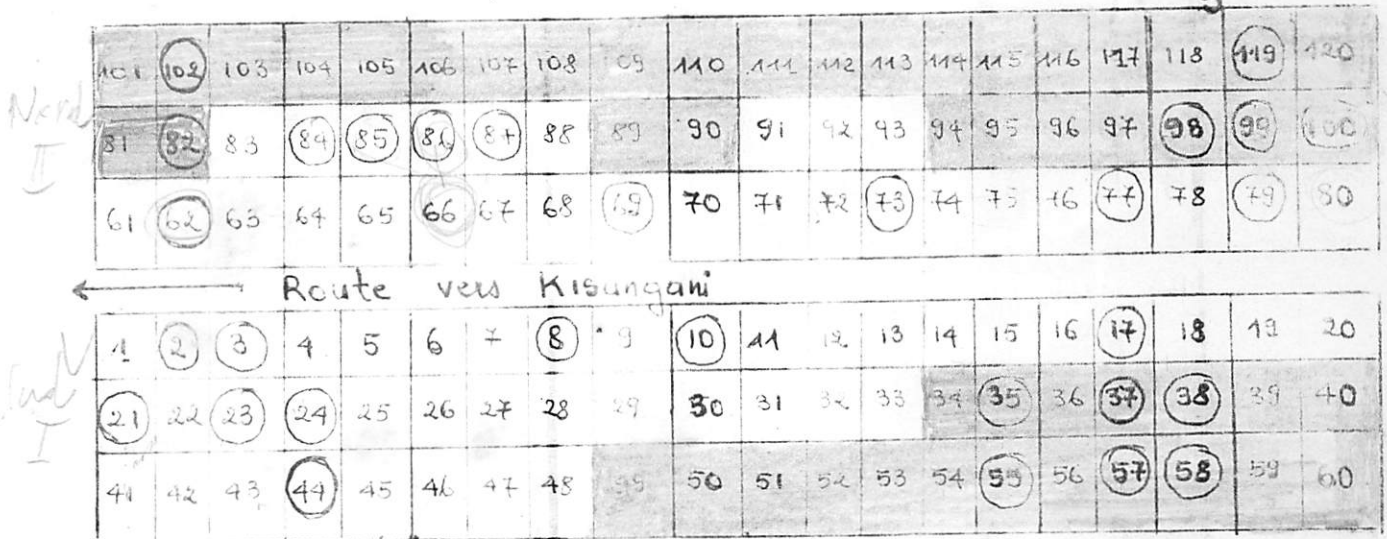 101 102 103 104 105 106 107 108 109 110 111 112 113 114 115 116 117 118 119 120
Nord
81 82 83 84 85 86 87 88 89 90 91 92 93 94 95 96 97 98 99 100
II
61 62 63 64 65 66 67 68 69 70 71 72 73 74 75 76 77 78 79 80
Route vers Kisangani
1 2 3 4 5 6 7 8 9 10 11 12 13 14 15 16 17 18 19 20
Sud
21 22 23 24 25 26 27 28 29 30 31 32 33 34 35 36 37 38 39 40
I
41 42 43 44 45 46 47 48 49 50 51 52 53 54 55 56 57 58 59 60